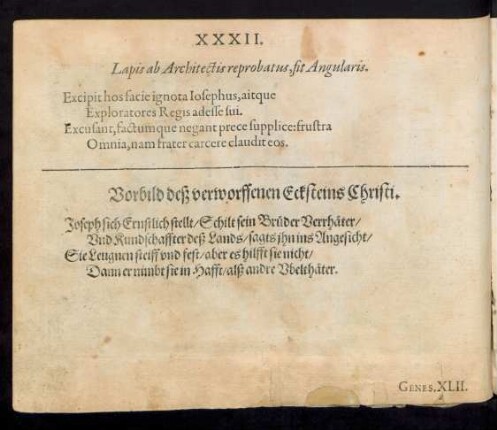 XXXII.
Lapis ab Architectis reprobatus, fit Angularis.
Excipit hos facie ignota Iosephus, aitque
Exploratores Regis adesse sui.
Excusant, factumque negant prece supplice: frustra
Omnia, nam frater carcere claudit eos.
Vorbild deß verworffenen Ecksteins Christi.
Joseph sich Ernstlich stellt/ Schilt sein Brüder Verrhäter/
Vnd Kundschaffter deß Lands/ sagts ihn ins Angesicht/
Sie Leugnen steiff vnd fest/ aber es hilfft sie nicht/
Dann er nimbt sie in Hafft/ alß andre Vbelthäter.
GENES. XLII.